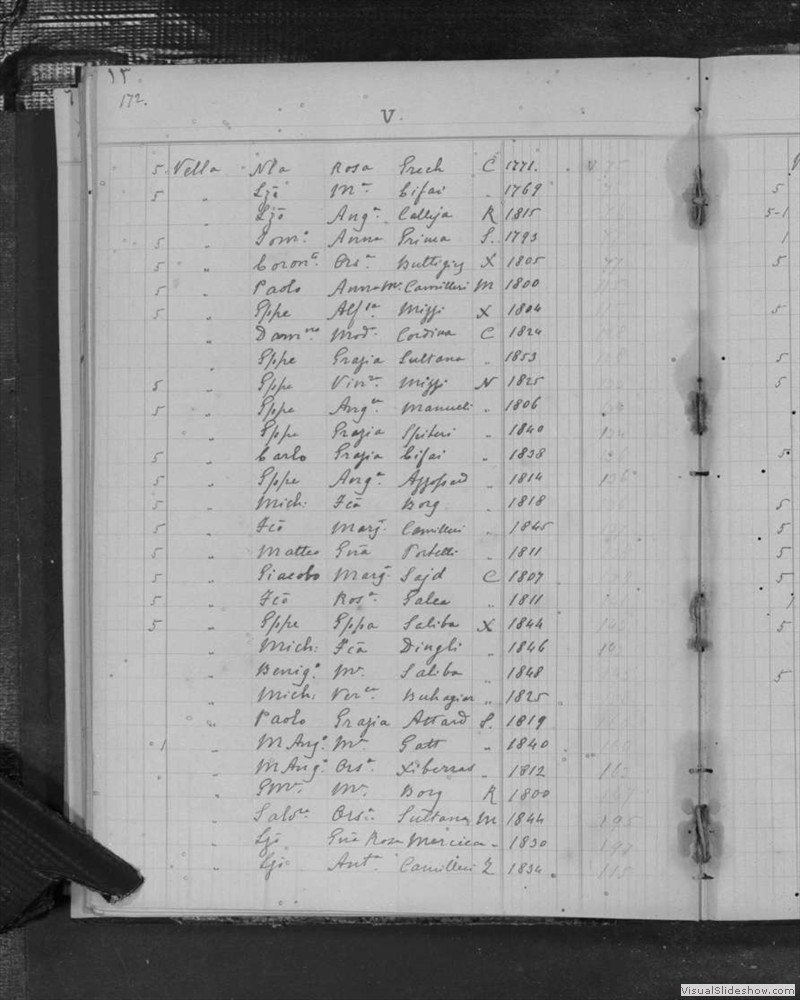 ١٢
172.
V.
5 Vella Nla Rosa Grech C 1771.
5 " Lzō Mª Cifai " 1769
" Lzō Angª Calleja R 1815
5 " Domº Anna Grima S. 1793
5 " Coronᵗᵒ Orsª Buttigieg X 1805
5 " Paolo Anna Mª Camilleri M 1800
5 " Gppe Alfˢᵃ Mizzi X 1804
" Damⁿᵒ Modª Cordina C 1824
" Gppe Grazia Sultana " 1853
5 " Gppe Vinᶻª Mizzi N 1825
5 " Gppe Angª " 1806
" Gppe Grazia Spiteri " 1840
5 " Carlo Grazia Cifai " 1838
5 " Gppe Angª Azzopard " 1814
5 " Mich: Fcā Borg " 1818
5 " Fcō Marg. Camilleri " 1845
5 " Matteo Gnā " 1811
5 " Giacobo Marg. Sajd C 1807
5 " Fcō Rosª Galea " 1811
5 " Gppe Gppa Saliba X 1844
" Mich: Fcā Dingli " 1846
" Benigº Mª Saliba " 1848
" Mich: Verᶜª Buhagiar " 1825
" Paolo Grazia Attard S. 1819
1 " M Angº Mª Gatt " 1840
" M Angº Orsª Xiberras " 1812
" Mª Borg R 1800
" Salvʳᵉ Orsª Sultana M 1844
" Lzō Gnā Rosa Marcieca " 1830
" Gjō Antª Camilleri Z 1834
VisualSlideshow.com